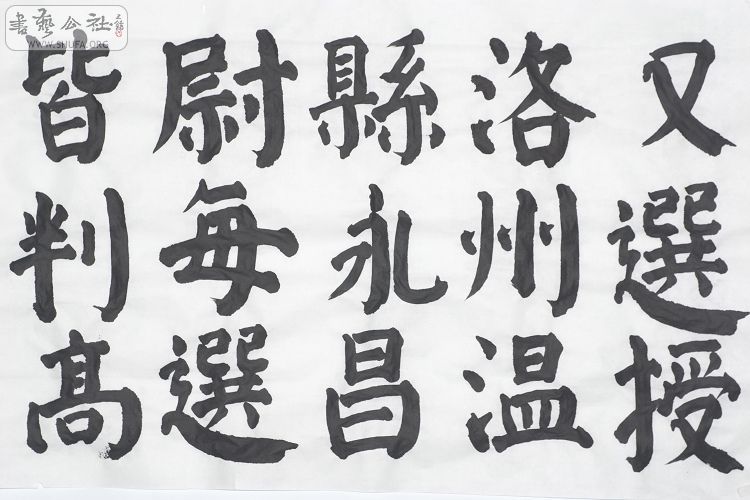 書藝公社
WWW.SHUFA.ORG
又選授
洛州温
縣永昌
尉每選
皆判髙